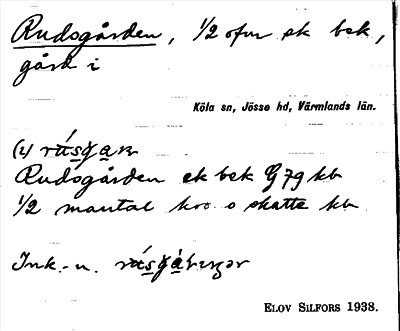 Rudsgården, 1/2 ofvr sk bsk,
gård i
Köla sn, Jösse hd, Värmlands län.
(4)
Rudsgården ek bsk G79 kb
1/2 mantal kro o skatte kb
Ink.-n.
ELOV SILFORS 1938.